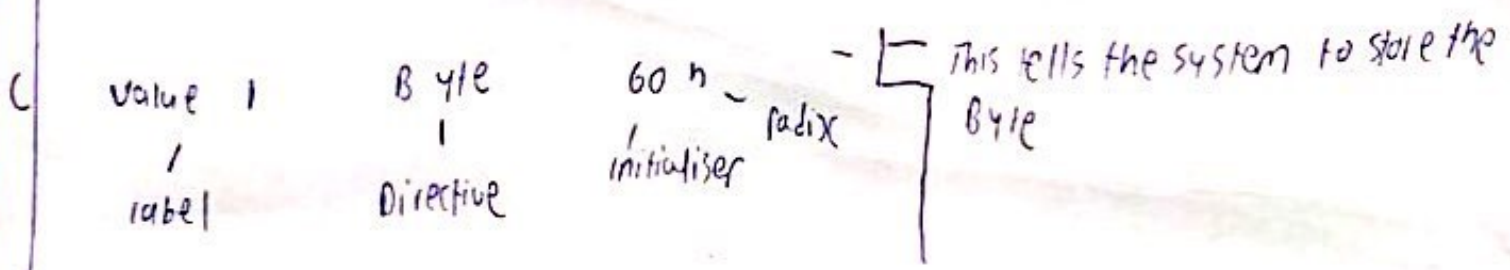 C value 1 Byte 60 h - This tells the system to store the
radix Byte
label Directive initialiser